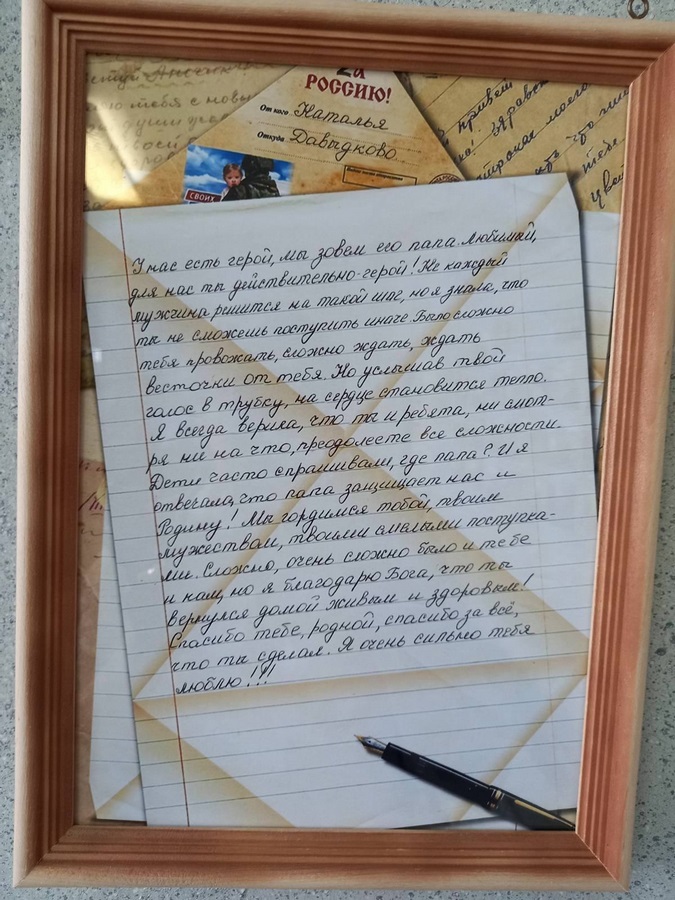 За
РОССИЮ!
От кого Наталья
Откуда Давыдково
СВОИХ
У нас есть герой, мы зовем его папа. Любимый,
для нас ты действительно-герой! Не каждый
мужчина решится на такой шаг, но я знала, что
ты не сможешь поступить иначе. Было сложно
тебя провожать, сложно ждать, ждать
весточки от тебя. Но услышав твой
голос в трубку, на сердце становится тепло.
Я всегда верила, что ты и ребята, ни смот-
ря ни на что, преодолеете все сложности.
Дети часто спрашивали, где папа? И я
отвечала, что папа защищает нас и
Родину! Мы гордимся тобой, твоим
мужеством, твоими смелыми поступка-
ми. Сложно, очень сложно было и тебе
и нам, но я благодарю Бога, что ты
вернулся домой живым и здоровым!
Спасибо тебе, родной, спасибо за всё,
что ты сделал. Я очень сильно тебя
люблю!!!